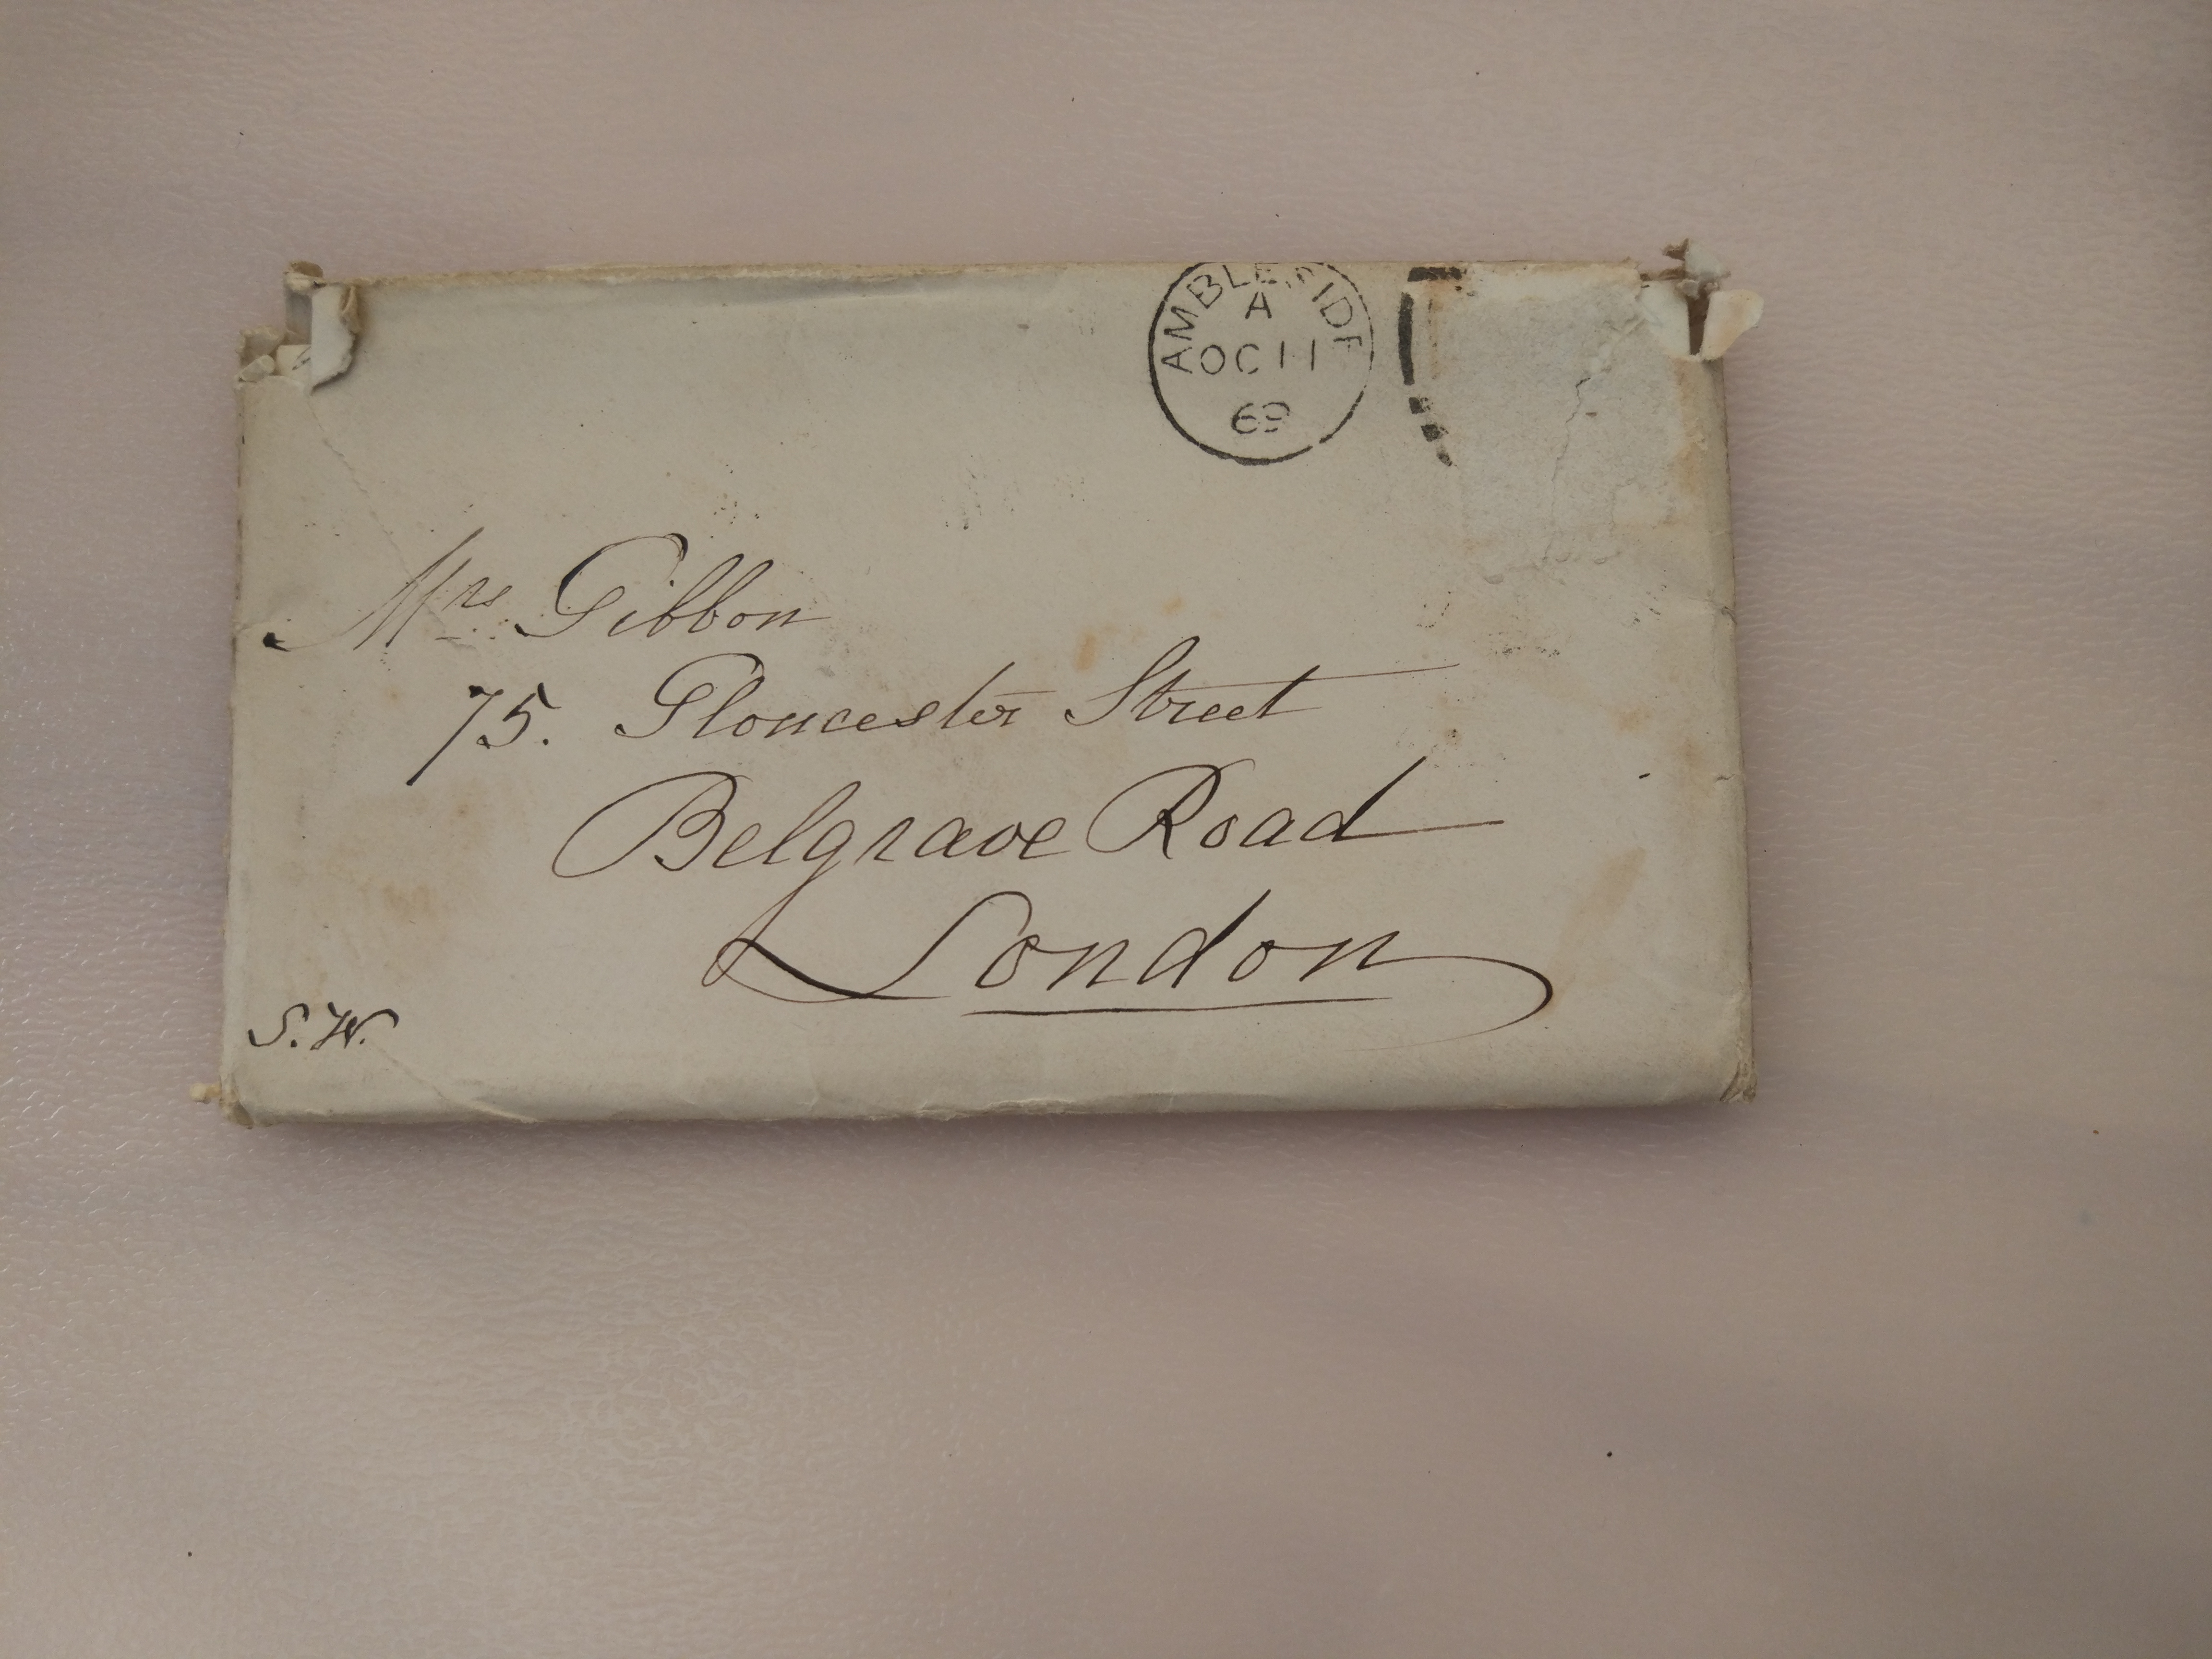 AMBLESIDE
A
OC 11
69
Mrs Gibbon
75. Gloucester Street
Belgrave Road
London
S.W.